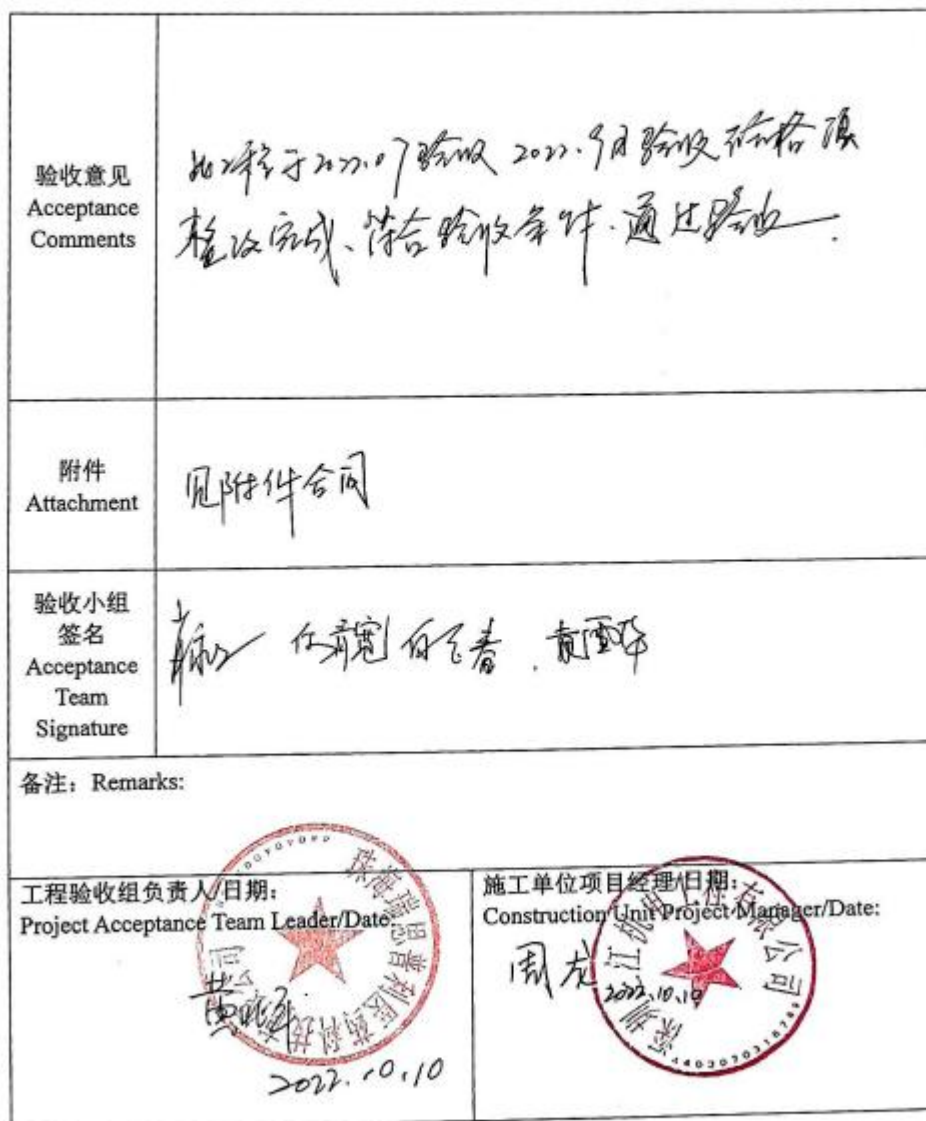 验收意见
Acceptance
Comments
此工程于2022.07验收 2022.9月验收
整改完成、符合验收条件.通过验收.
附件
Attachment
见附件合同
验收小组
签名
Acceptance
Team
Signature
备注：Remarks:
工程验收组负责人/日期:
Project Acceptance Team Leader/Date:
2022.10.10
施工单位项目经理/日期:
Construction Unit Project Manager/Date:
周龙
2022.10.10
珠海瑞思普利医药科技有限公司
4403070318789